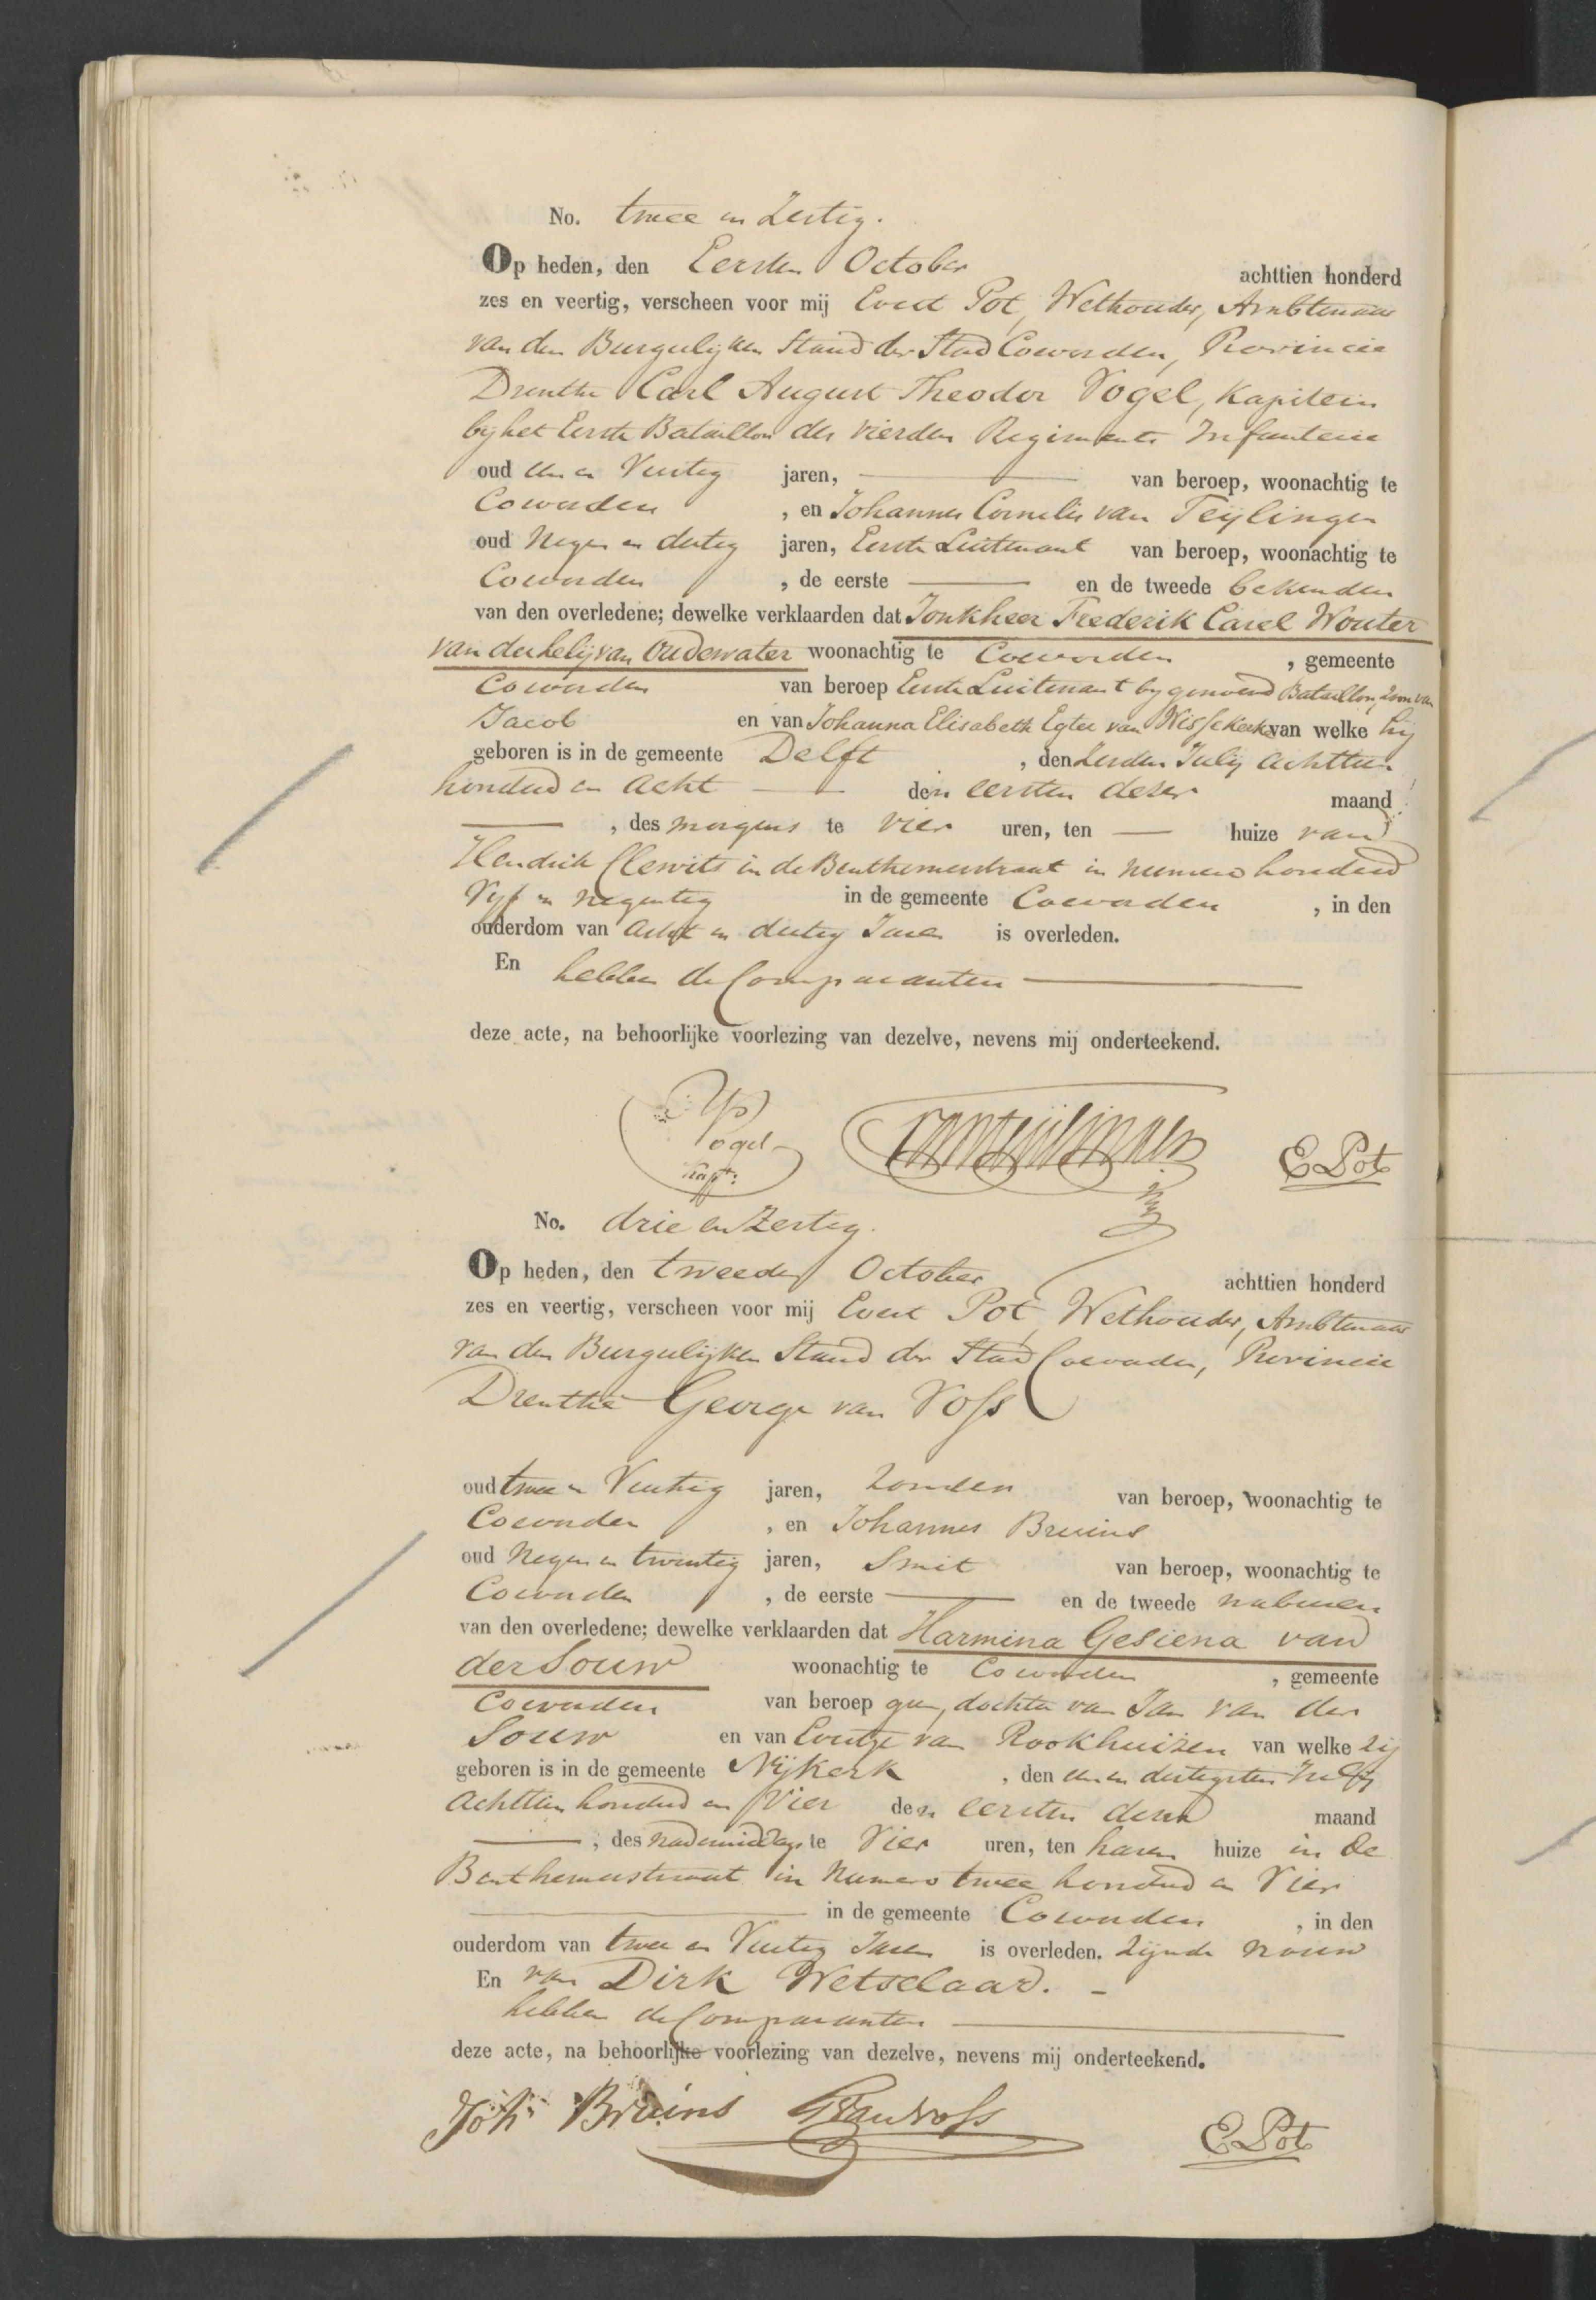 No. twee en Zestig.
Op heden, den Eersten October achttien honderd
zes en veertig, verscheen voor mij Evert Pot, Wethouder, Ambtenaar
van den Burgerlijken Stand der Stad Coevorden, Provincie
Drenthe Carl August Theodor Vogel, Kapitein
bij het Eerste Bataillon des vierden Regiments Infanterie
oud een en Veertig jaren, van beroep, woonachtig te
Coevorden, en Johannes Cornelis van Teijlingen
oud Negen en dertig jaren, Eerste Luitenant van beroep, woonachtig te
Coevorden, de eerste en de tweede bekenden
van den overledene; dewelke verklaarden dat Jonkheer Frederik Carel Wouter
van der Kelij van Oudewater woonachtig te Coevorden, gemeente
Coevorden van beroep Eerste Luitenant bij genoemd Bataillon, zoon van
Jacob en van Johanna Elisabeth Egter van Wissekerke van welke hij
geboren is in de gemeente Delft, den Zesden Julij Achttien
honderd en Acht den eersten dezer maand
, des morgens te vier uren, ten huize van
Hendrik Clewits in de Benthemerstraat in numero honderd
Vijf en negentig in de gemeente Coevorden, in den
ouderdom van Acht en dertig Jaren is overleden.
En hebben de Comparanten
deze acte, na behoorlijke voorlezing van dezelve, nevens mij onderteekend.
Vogel
Kapt: van Teijlingen E Pot
No. drie en Zestig.
Op heden, den tweeden October achttien honderd
zes en veertig, verscheen voor mij Evert Pot, Wethouder, Ambtenaar
van den Burgerlijken Stand der Stad Coevorden, Provincie
Drenthe George van Voss
oud twee en Veertig jaren, zonder van beroep, woonachtig te
Coevorden, en Johannes Bruins
oud Negen en twintig jaren, Smit van beroep, woonachtig te
Coevorden, de eerste en de tweede naburen
van den overledene; dewelke verklaarden dat Harmina Gesiena van
der Souw woonachtig te Coevorden, gemeente
Coevorden van beroep geen, dochter van Jan van der
Souw en van Evertje van Rookhuizen van welke zij
geboren is in de gemeente Nijkerk, den een en dertigsten Julij
Achttien honderd en Vier den eersten dezer maand
, des nademiddags te Vier uren, ten haren huize in de
Benthemerstraat in Numero twee honderd en Vier
in de gemeente Coevorden, in den
ouderdom van twee en Veertig Jaren is overleden. zijnde vrouw
En van Dirk Wetselaar.
hebben de Comparanten
deze acte, na behoorlijke voorlezing van dezelve, nevens mij onderteekend.
Joh: Bruins G van Voss E Pot